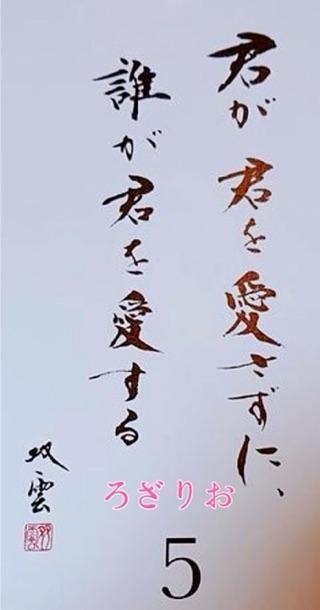 君が君を愛さずに、
誰が君を愛する
双雲
ろざりお
5